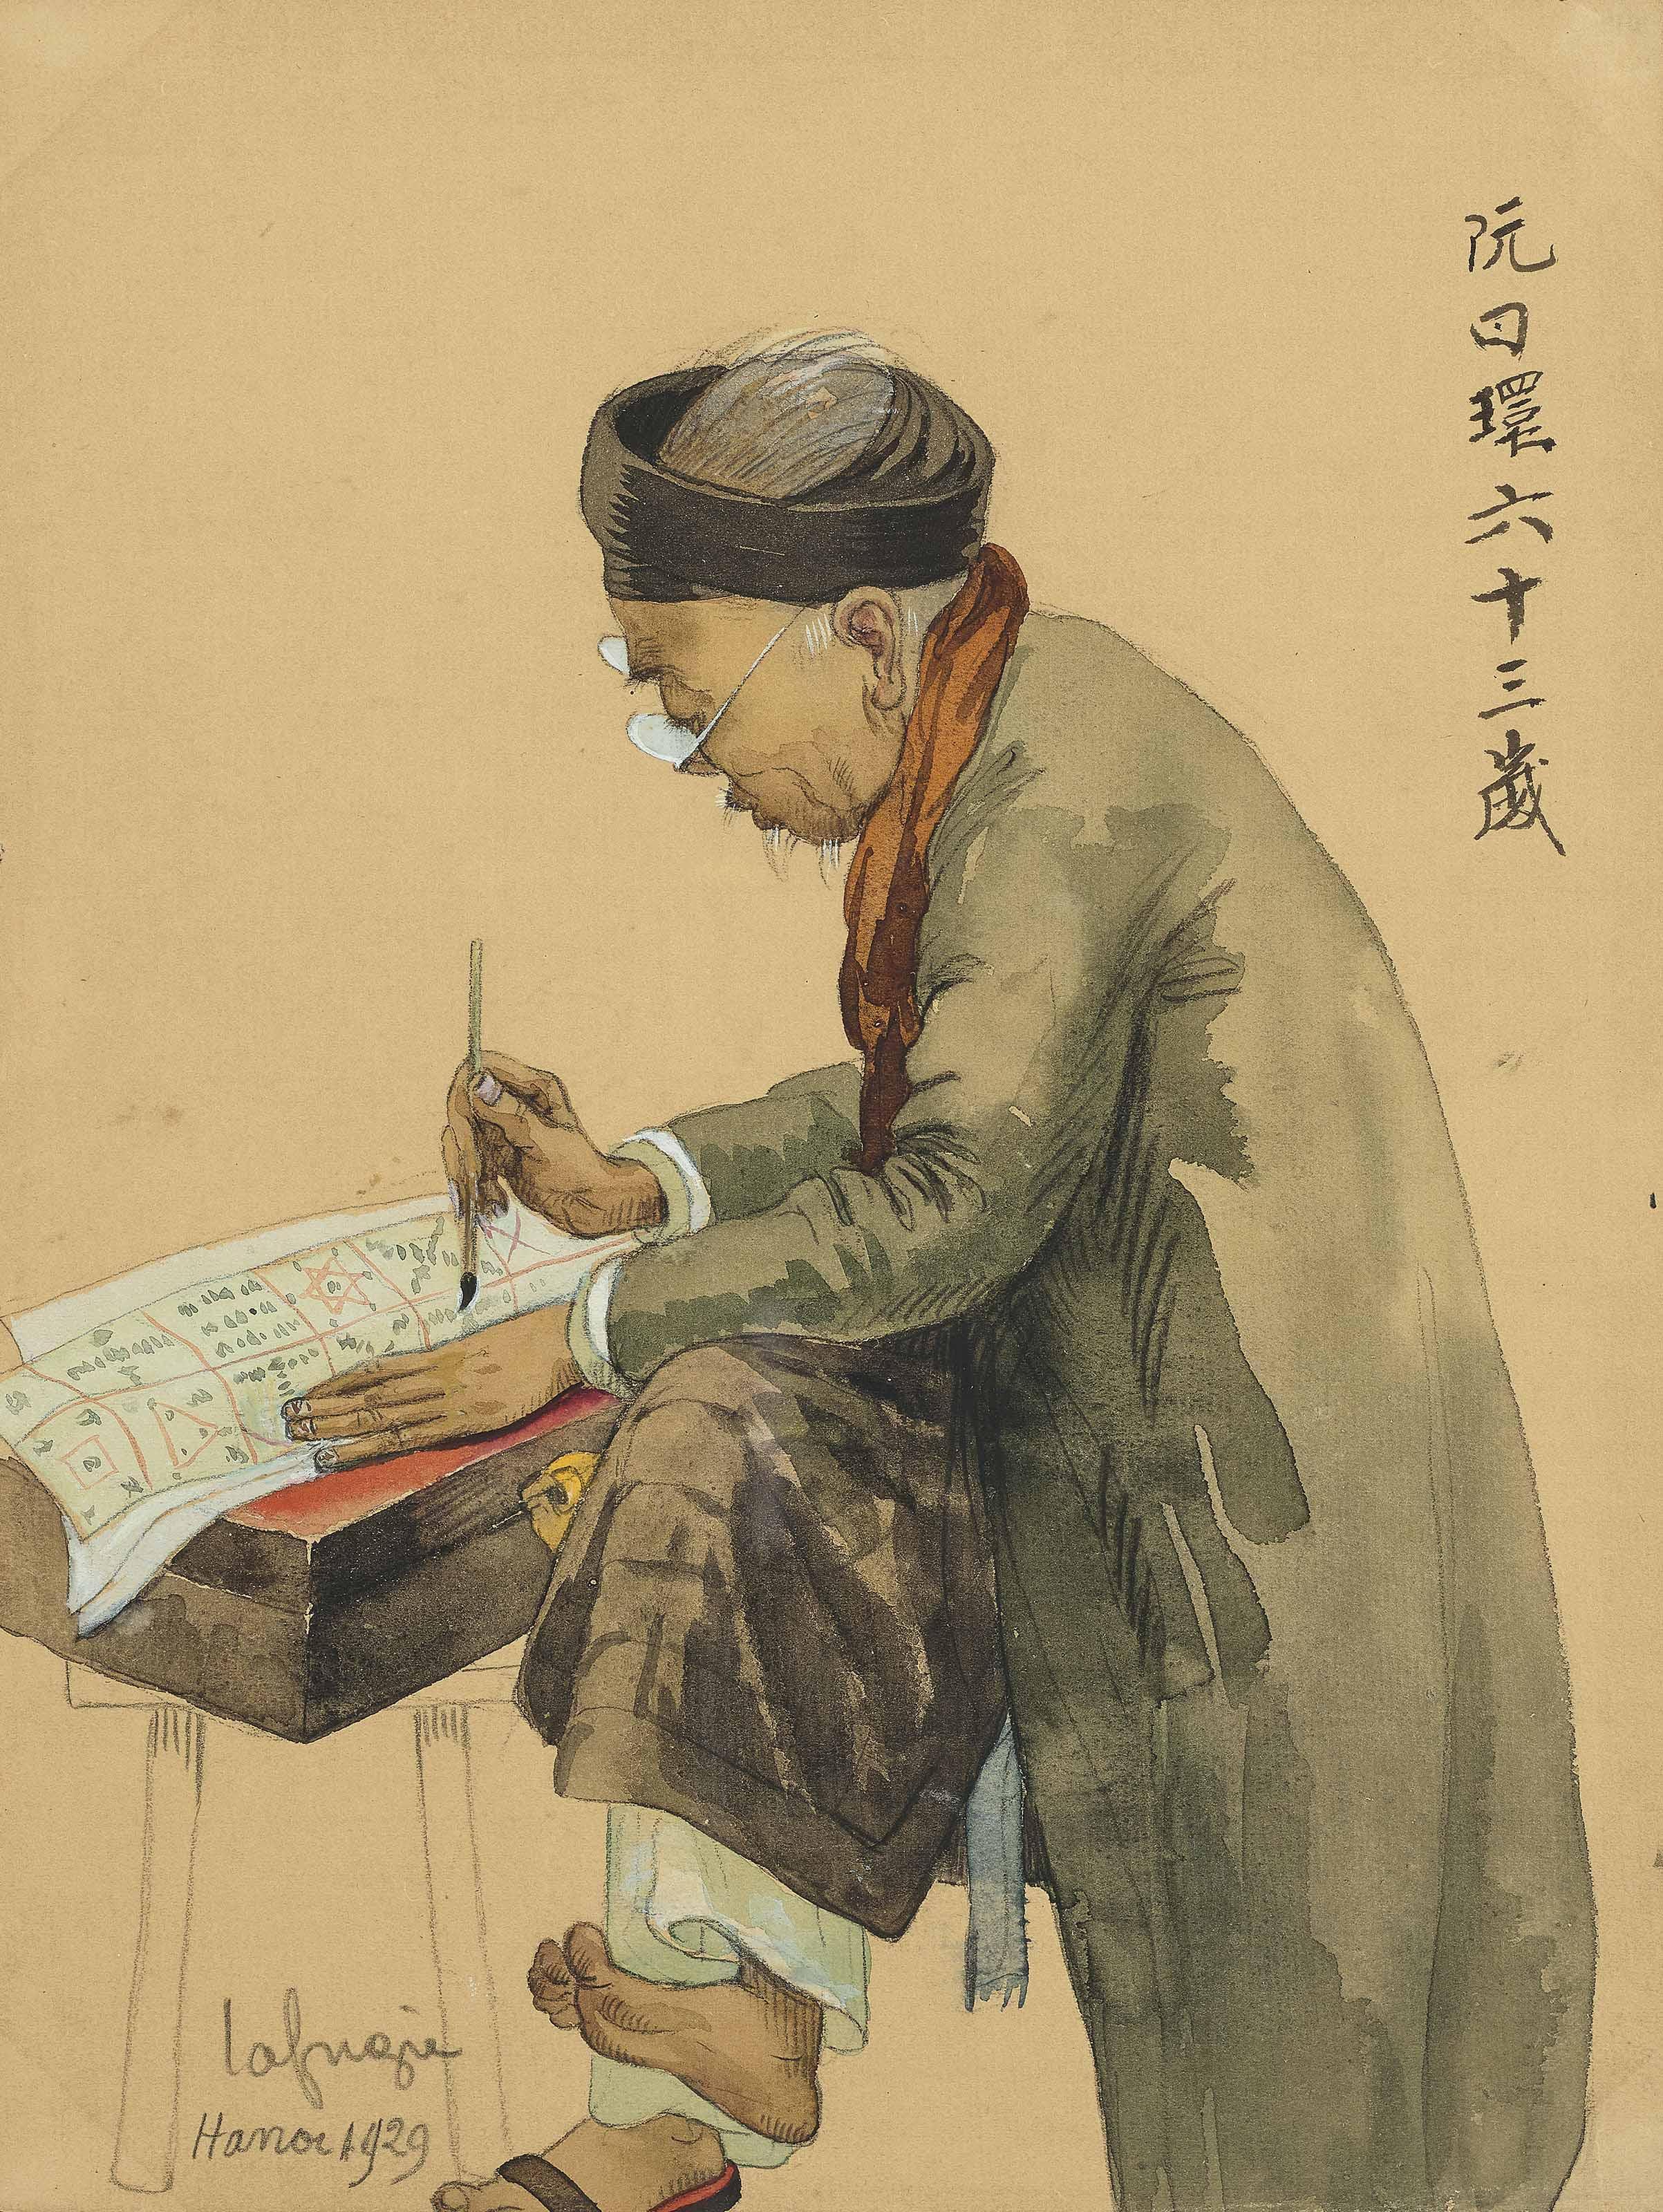 阮曰環六十三歲
lafugie
Hanoi 1929